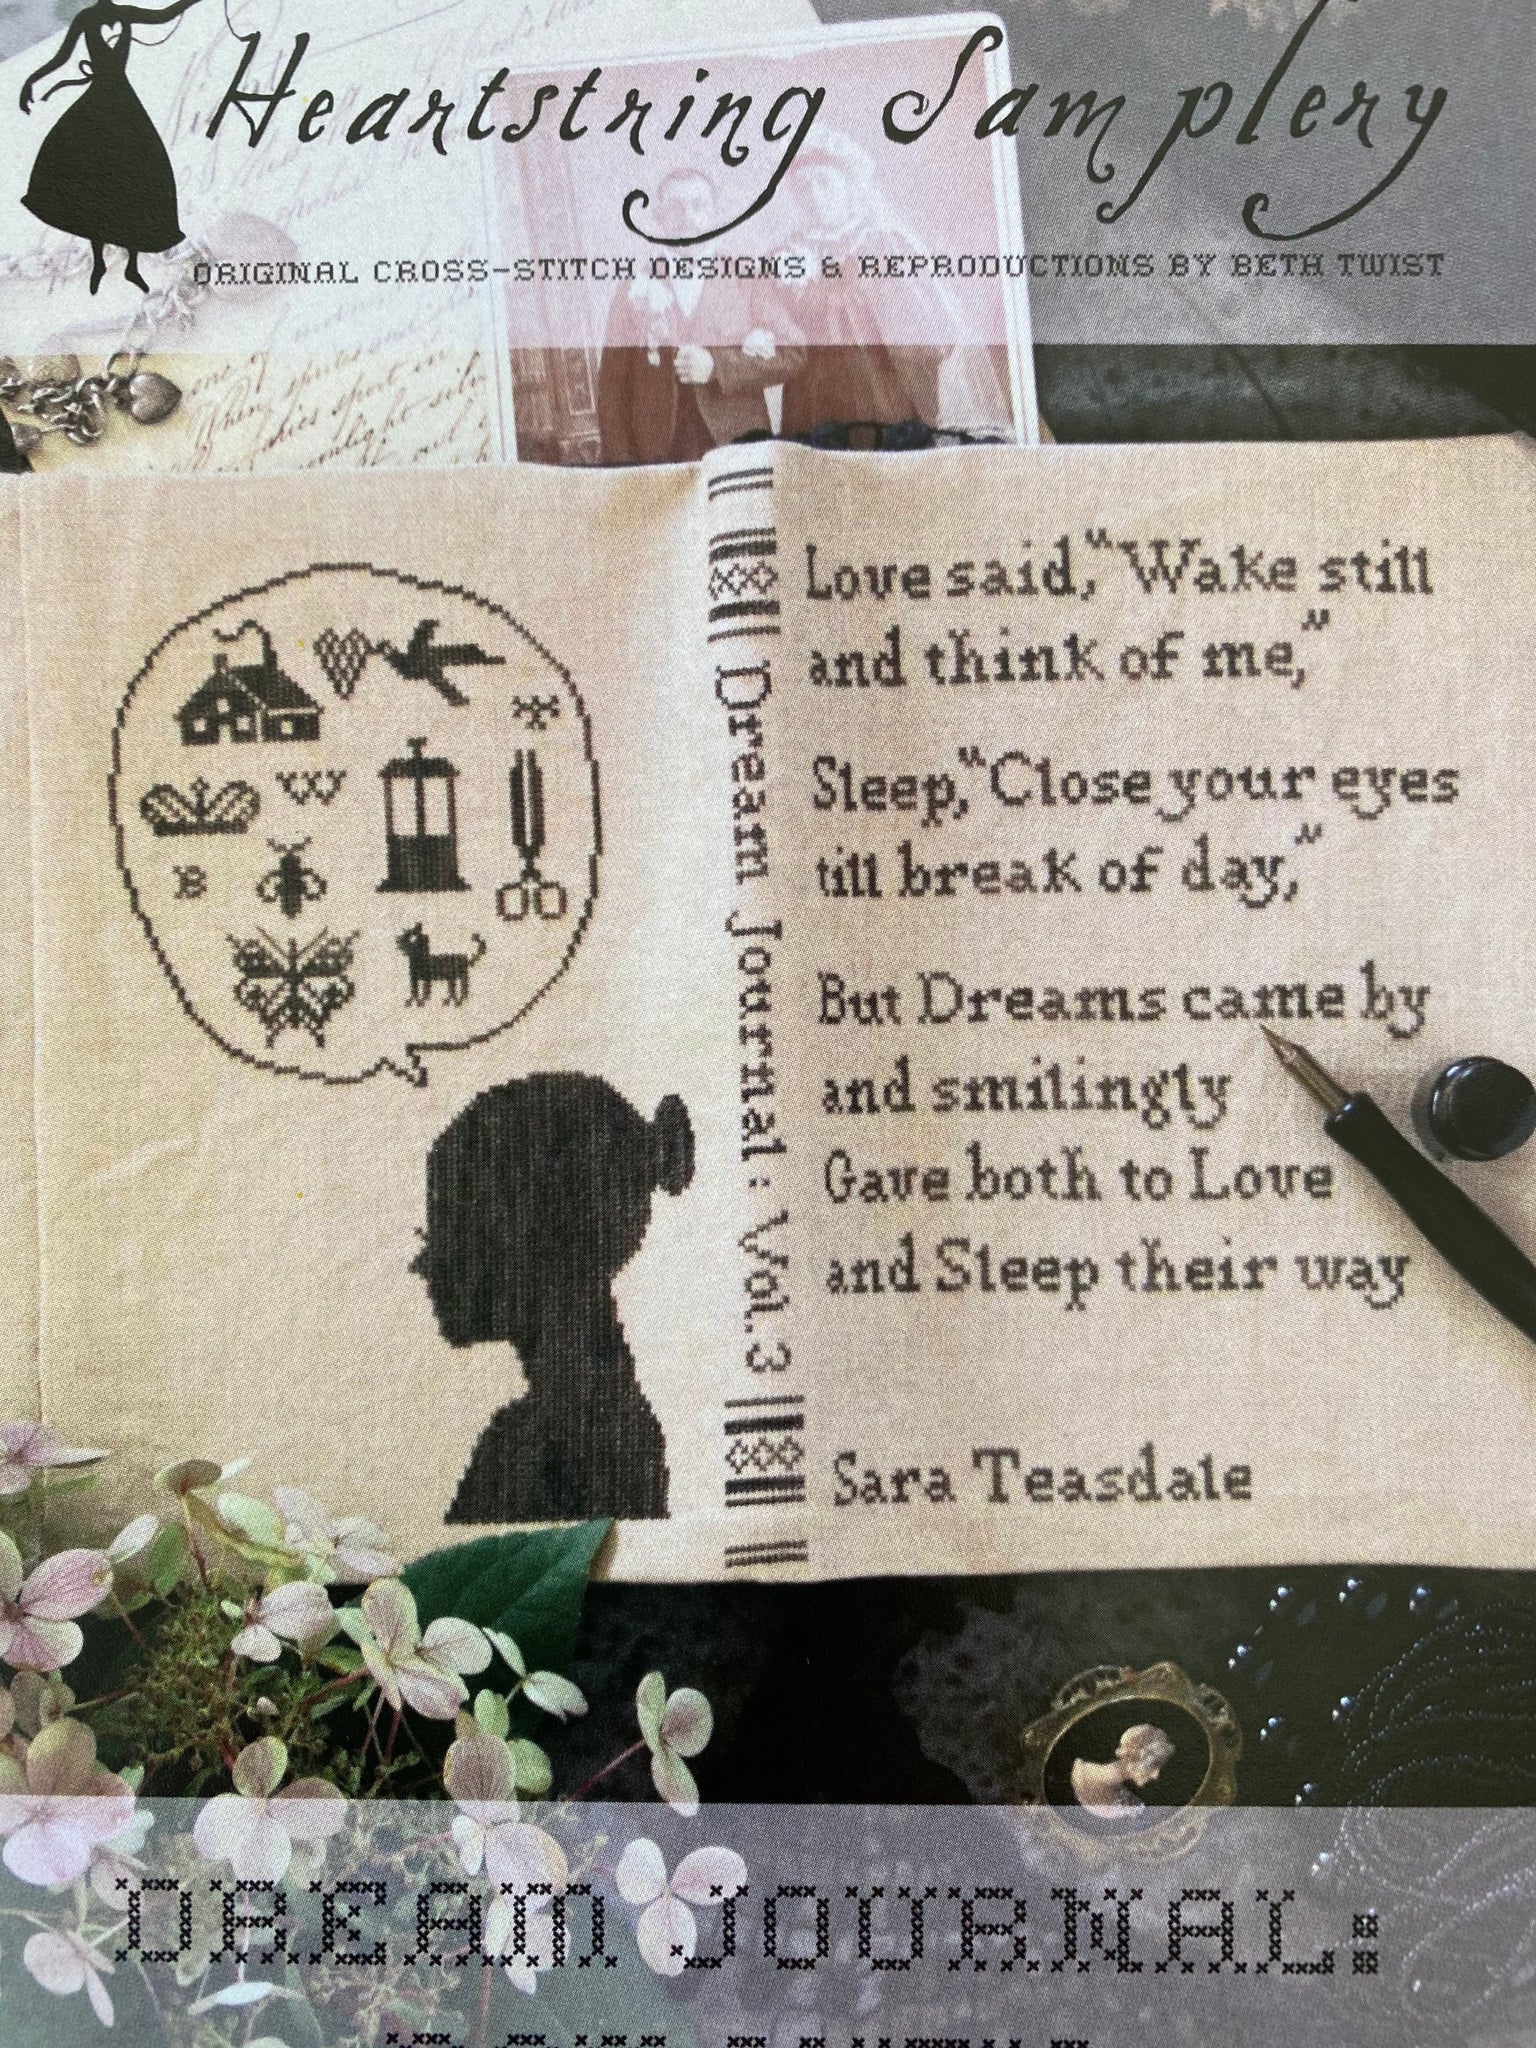 Heartstring Samplery
ORIGINAL CROSS-STITCH DESIGNS & REPRODUCTIONS BY BETH TWIST
Dream Journal: Vol. 3
Love said, "Wake still
and think of me,"
Sleep, "Close your eyes
till break of day,"
But Dreams came by
and smilingly
Gave both to Love
and Sleep their way
Sara Teasdale
DREAM JOURNAL: